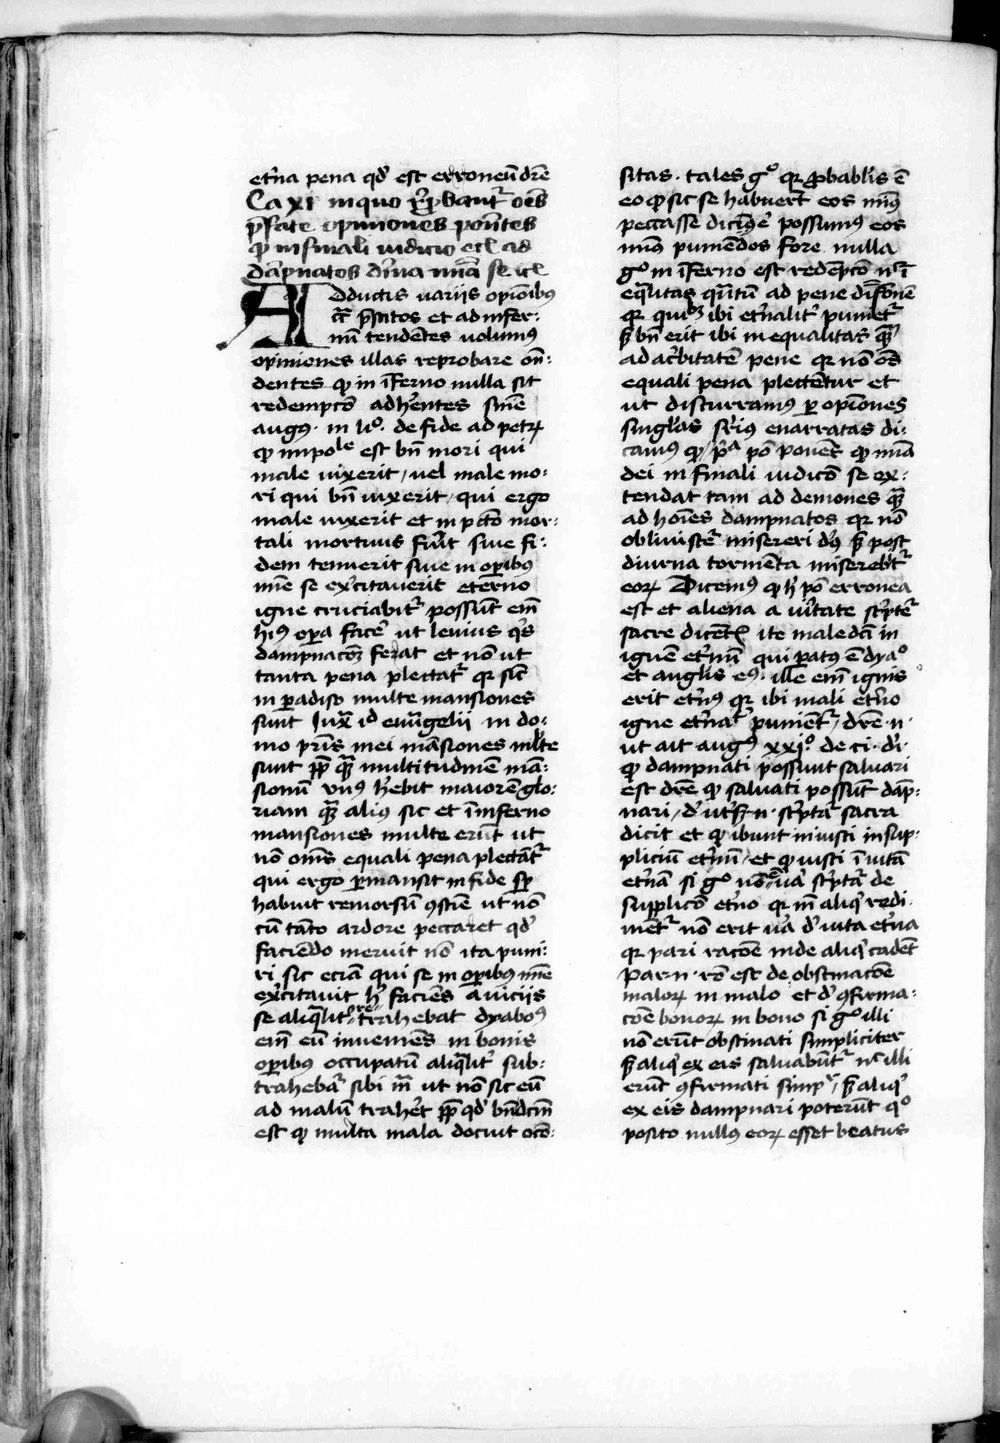 et̄na pena qd̕ est erroneū dr̄e
Ca xi in quo rp̄baut᷑ oēs
p̄fate opiniones ponētes
ꝙ in finali iudicio etc̄ ad
dāpnatos diīna miā se etc̄
Adductis uarijs opīonibꝰ
c᷑ p̄scitos et ad infer-
nū tendētes uolumꝰ
opiniones illas reprobare on̄-
dentes ꝙ in īferno nulla sit
redempcō adhētes sn̄ie
augꝰ. in liᵒ. de fide ad petꝝ
ꝙ impoˡᵉ est bn̄ mori qui
male uixerit / uel male mo-
ri qui bn̄ uixerit / qui ergo
male uixerit et in pctō mor-
tali mortuus fuīt siue fi-
dem tenuerit siue in oꝑibꝰ
mīe se exc̄itauerit eterno
igne cruciabit᷑ possūt em̄
hiꝰ oꝑa face᷑ ut leuius q̄s
dampnacōꝫ ferat et nō ut
tanta pena plectat᷑ qꝛ sic̄
in ꝑadiso multe mansiones
sunt Iux̄ id euāgelii in do-
mo pr̄is mei māsiones mlt̄e
sunt ꝓp̄ qᷓ multitudinē mā-
sionū vnꝰ hēbit maiorē glo-
riam qᷓꝫ aliꝰ sic et ī inferno
mansiones multe erūt ut
nō om̄s equali pena plectāt᷑
qui ergo ꝑmansit in fide sp̄
habuit remorsū ꝯsciē ut nō
cū tāto ardore peccaret qd̕
faciēdo meruit nō ita puni-
ri sic eciā qui se in oꝑibꝰ mīe
exc̄itauit hͦ faciēs a uicijs
se aliqᷓlit᷑ retrahebat dyabolꝰ
em̄ eū inueniēs in bonis
oꝑibꝰ occupatū aliqᷓlit᷑ sub-
trahebat᷑ sibi m̄ ut nō sic eū
ad malū trahēt ꝓp̄ qd̕ bn̄dc̄m
est ꝙ multa mala docuit ocō-
sitas. tales gᵒ qꝛ ꝓbabl̄is ē
eo ꝙ sic se habuert̄ eos minꝰ
peccasse dicimꝰ possumꝰ eos
minꝰ puniendos fore nulla
gᵒ in īferno est redēpcō nᶜ ī
eqᷓlitas qᷓntū ad pene dīfōnē
qꝛ quil; ibi et̄nalit᷑ puniet᷑
sꝫ bn̄ erit ibi inequalitas qᷓꝫ
ad acr̄bitatē pene qꝛ nō oēs
equali pena plectentur et
ut discurramꝰ ꝑ opīones
singl̄as suꝑius enarratas di-
camꝰ ꝙ pᵃ pō ponēs ꝙ mīa
dei in finali iudicō se ex-
tendat tam ad demones qᷓꝫ
ad hoīes dampnatos qꝛ nō
obliuiscet᷑ misereri dꝰ sꝫ post
diurna tormēta miserebit᷑
eoꝝ Dicemꝰ ꝙ hͦ pō erronea
est et aliena a uītate sc̄pte᷑
sacre dicent̄ ite maledcī in
ignē et̄nū qui ꝑatꝰ ē dyaᵒ
et angl̄is eiꝰ. ille em̄ ignis
erit et̄nꝰ qꝛ ibi mali et̄no
igne et̄nat᷑ puniēt᷑ / dr̄e .n.
ut ait augꝰ xxiᵒ. de ci. di̕.
ꝙ dampnati possunt saluari
est dr̄e ꝙ saluati possūt dāp-
nari / d̕ ut̄sꝫ .n. sc̄pta᷑ sacra
dicit et ꝙ ibunt iniusti in sup-
pliciū et̄nū / et ꝙ iusti ī uitā
et̄nā si gᵒ nō ē ua᷑ sc̄pta᷑ de
supplicō et̄no qꝛ in̄ aliqͥ redi-
mēt᷑ nō erit ua᷑ d̕ uita et̄na
qꝛ pari racōe inde aliqͥ cadēt
Par .n. rō est de obstinacōe
maloꝝ in malo et d̕ ꝯfirma-
cōe bonoꝝ in bono si gᵒ illi
nō erūt obstinati simpliciter
sꝫ aliqͥ ex eis saluabūt᷑ nᶜ illi
erūt ꝯfirmati simpᵣ / sꝫ aliqͥ
ex eis dampnari poterūt qᵒ
posito nullꝰ eoꝝ esset beatus